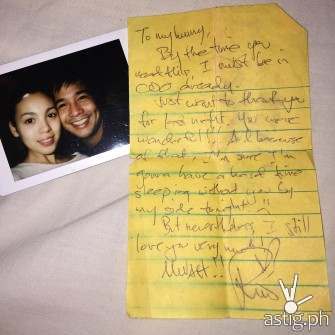 To my bunny,
By the time you
read this, I must be in
CDO already.
Just want to thank you
for last night. You were
wonderful! And because
of that, I'm sure I'm
gonna have a hard time
sleeping without you by
my side tonight!
But nevertheless I still
love you very much!
MWAH!!
astig.ph